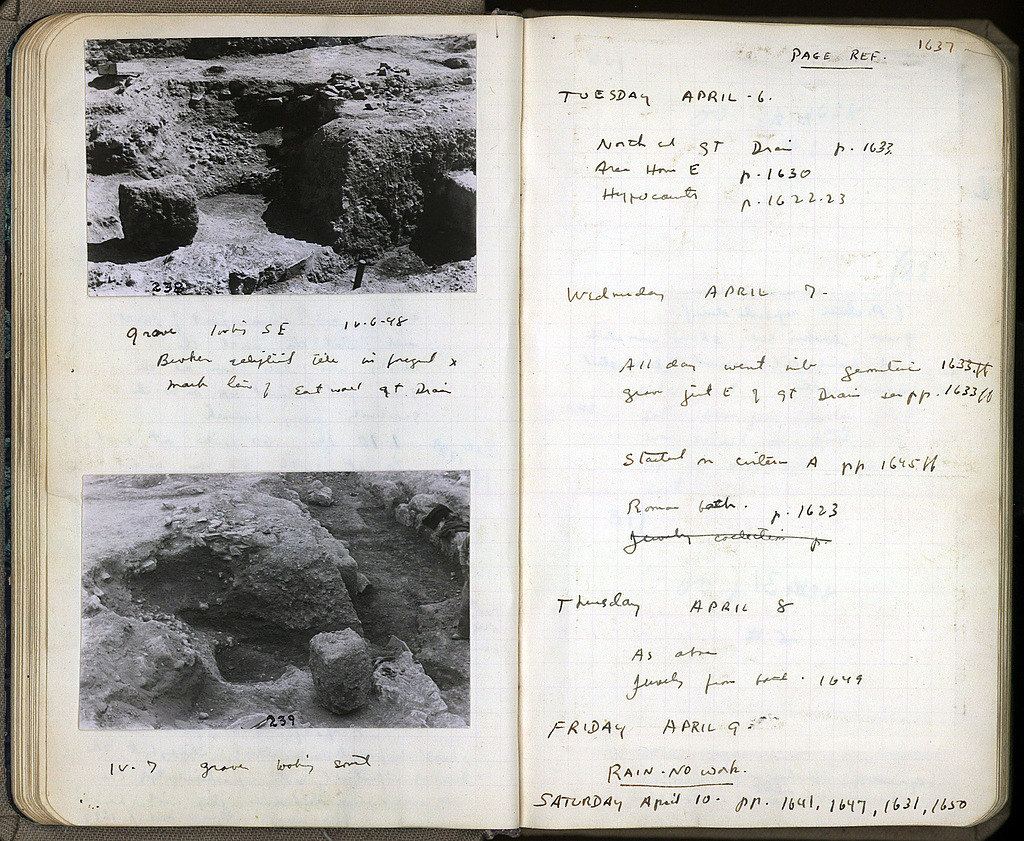 238
grave looking SE IV-6-48
Broken tile in
mark line of East wall Gt Drain
239
IV. 7 grave looking south
1637
PAGE REF.
TUESDAY APRIL - 6.
North end Gt Drain p. 1633
Area House E p. 1630
Hypocausts p. 1622-23
Wednesday APRIL 7-
All day went into geometric 1633 ff
grave just E of Gt Drain see pp. 1633 ff
Started on cistern A pp 1645 ff
Roman bath. p. 1623
Jewelry collection p.
Thursday APRIL 8
As above
Jewelry from bath. 1649
FRIDAY APRIL 9.
RAIN - NO work.
SATURDAY April 10- pp. 1641, 1647, 1631, 1650